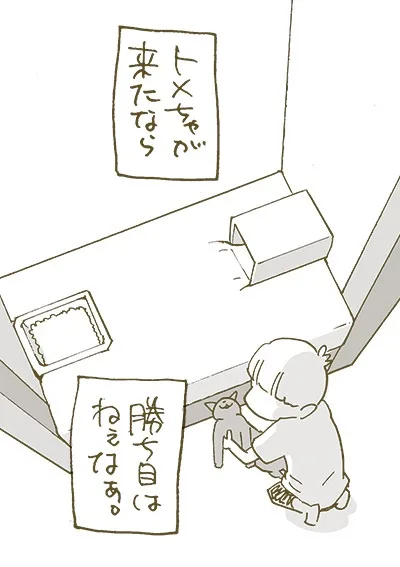 トメちゃが
来たなら
勝ち目は
ねぇなぁ。